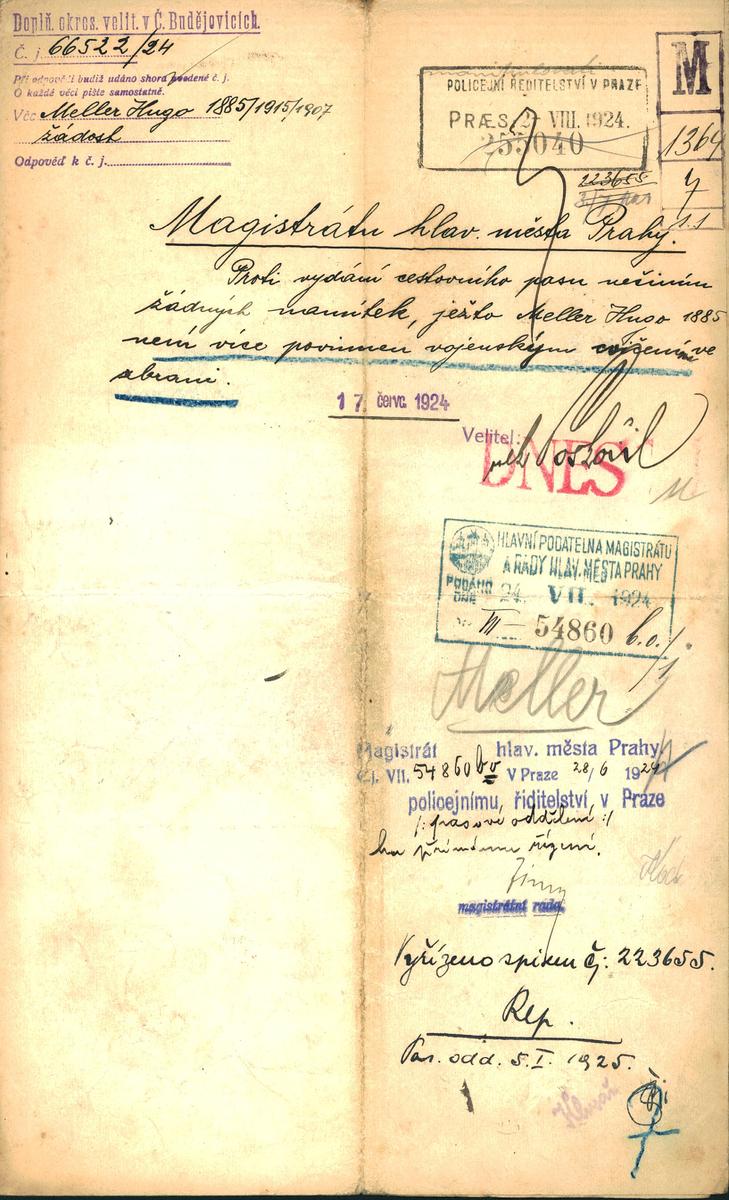 Doplň. okres. velit. v Č. Budějovicích.
Č. j. 66522/24
Při odpovědi budiž udáno shora uvedené č. j.
O každé věci pište samostatně.
Věc Meller Hugo 1885/1915/1907
žádost
Odpověď k č. j.
POLICEJNÍ ŘEDITELSTVÍ V PRAZE
PRÆS. 2- VIII. 1924.
255040
223655
M
1364
Magistrátu hlav. města Prahy.
Proti vydání cestovního pasu nečiním
žádných namítek, ježto Meller Hugo 1885
není více povinnen vojenským cvičením ve
zbrani.
17 červc. 1924
Velitel:
DNES
HLAVNÍ PODATELNA MAGISTRÁTU
A RADY HLAV. MĚSTA PRAHY
PODÁNO
DNE 24. VII. 1924
III - 54860 b.o./
Meller
Magistrát hlav. města Prahy.
Čj. VII. 54860 bo V Praze 28/6 1924
policejnímu, řiditelství v Praze
/: pasové oddělení :/
ku přímému řízení.
magistrátní rada.
Vyřízeno spisem čj: 223655.
Rep.
Pas. odd. 5.I. 1925.